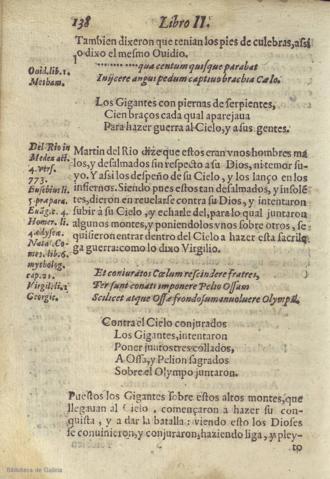 138 Libro II.
Tambien dixeron que tenian los pies de culebras, assi
lo dixo el mesmo Ovidio.
Ouid. lib. 1.
Metham.
qua centum quisque parabat
Inijcere anguipedum captiuo brachia Cælo.
Los Gigantes con piernas de serpientes,
Cien braços cada qual aparejaua
Para hazer guerra al Cielo, y a sus gentes.
Del Rio in
Medea act.
4. vers.
773.
Eusebius li.
5 prapara.
Euāg. c. 4.
Homer. li.
4. odysea.
Nata. Co-
mes. lib. 6.
mytholog.
cap. 21.
Virgil. li. 1
Georgic.
Martin del Rio dize que estos eran vnos hombres ma
los, y desalmados sin respecto a su Dios, ni temor su-
yo. Y assi los despeño de su Cielo, y los lanço en los
infiernos. Siendo pues estos tan desalmados, y insolé-
tes, dieron en reuelarse contra su Dios, y intentaron
subir a su Cielo, y echarle del, para lo qual juntaron
algunos montes, y poniendolos vnos sobre otros, se
quisieron entrar dentro del Cielo a hazer esta sacrile
ga guerra: como lo dixo Virgilio.
Et coniuratos Cælum rescindere fratres,
Ter sunt conati imponere Pelio Ossam
Scilicet atque Ossæ frondosum inuoluere Olympũ.
Contra el Cielo conjurados
Los Gigantes, intentaron
Poner juntos tres collados,
A Ossa, y Pelion sagrados
Sobre el Olympo juntaron.
Puestos los Gigantes sobre estos altos montes, que
llegauan al Cielo, començaron a hazer su con-
quista, y a dar la batalla: viendo esto los Dioses
se conuinieron, y conjuraron, haziendo liga, y pley-
to
Biblioteca de Galicia